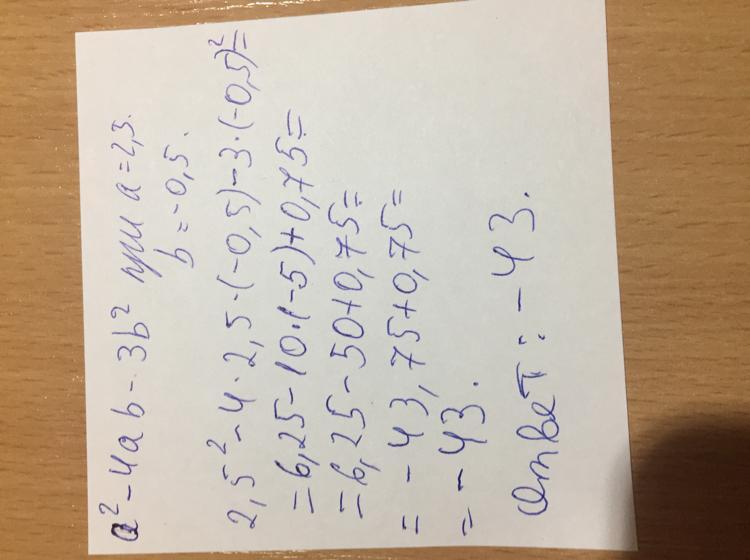 a² - 4ab - 3b² при a = 2,5.
b = -0,5.
2,5² - 4·2,5·(-0,5) - 3·(-0,5)² =
= 6,25 - 10·(-5) + 0,75 =
= 6,25 - 50 + 0,75 =
= -43,75 + 0,75 =
= -43.
Ответ: -43.